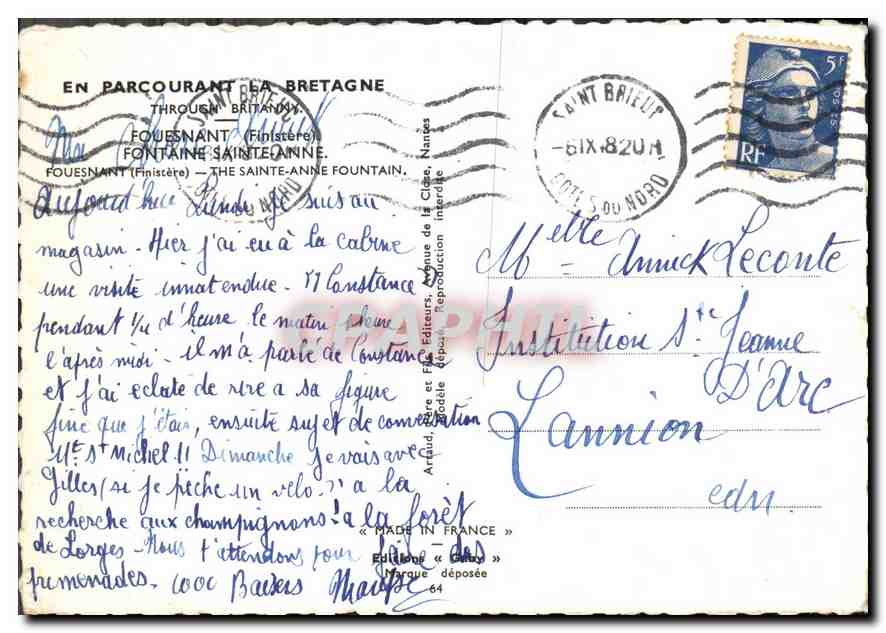 EN PARÇOURANT LA BRETAGNE
THROUGH BRITANNY.
FOUESNANT (Finistère).
FONTAINE SAINTE-ANNE.
FOUESNANT (Finistère) — THE SAINTE-ANNE FOUNTAIN.
Ma
Aujourd'hui Lundi je suis au
magasin - Hier j'ai eu à la cabine
une visite innatendue - Mr Constance
pendant 1/4 d'heure le matin
l'après midi - il m'a parlé de Constance
et j'ai eclaté de rire a sa figure
fine que j'étais, ensuite sujet de conversation
Mt St Michel !! Dimanche je vais avec
Gilles (si je pèche un velo !) a la
recherche aux champignons ! a la forêt
de Lorges - Nous t'attendons pour faire des
promenades - 1000 Baisers
Artaud, Père et Fils, Editeurs, Avenue de la Close, Nantes
Modèle déposé. Reproduction interdite
« MADE IN FRANCE »
Editions « Gaby »
Marque déposée
64
SAINT BRIEUC
COTES DU NORD
SAINT BRIEUC
-6 IX 8 20 H
COTES DU NORD
5F
POSTES
RF
Melle Annick Leconte
Institution Ste Jeanne
D'Arc
Lannion
cdn
CPAPHIL